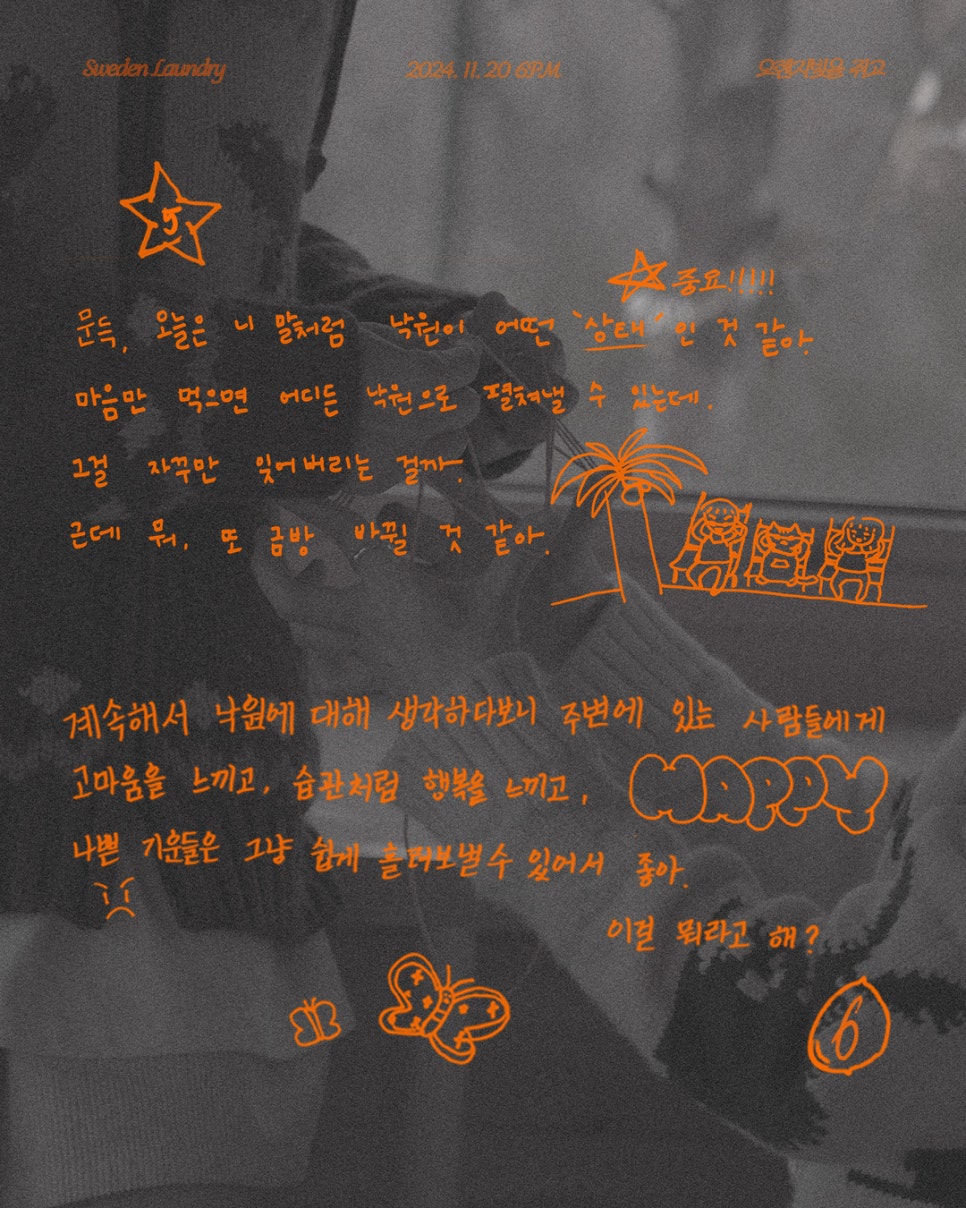 Sweden Laundry
2024. 11. 20 6P.M
오렌지빛을 쥐고
5
중요!!!!!
문득, 오늘은 니 말처럼 낙원이 어떤 '상태'인 것 같아.
마음만 먹으면 어디든 낙원으로 펼쳐낼 수 있는데,
그걸 자꾸만 잊어버리는 걸까.
근데 뭐, 또 금방 바뀔 것 같아.
계속해서 낙원에 대해 생각하다보니 주변에 있는 사람들에게
고마움을 느끼고, 습관처럼 행복을 느끼고, HAPPY
나쁜 기운들은 그냥 쉽게 흘려보낼 수 있어서 좋아.
이걸 뭐라고 해?
6